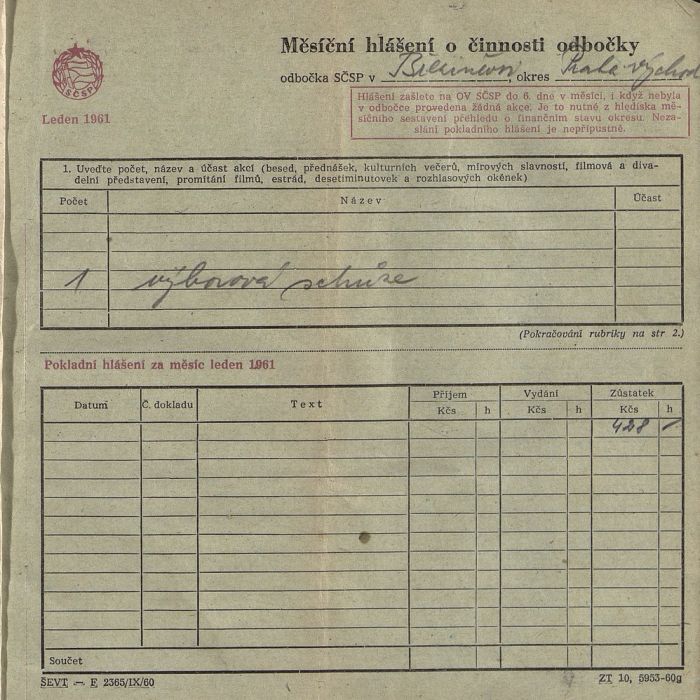 Měsíční hlášení o činnosti odbočky
odbočka SČSP v okres Praha východ
SČSP
Leden 1961
Hlášení zašlete na OV SČSP do 6. dne v měsíci, i když nebyla
v odbočce provedena žádná akce. Je to nutné z hlediska mě-
síčního sestavení přehledu o finančním stavu okresu. Neza-
slání pokladního hlášení je nepřípustné.
1. Uveďte počet, název a účast akcí (besed, přednášek, kulturních večerů, mírových slavností, filmová a diva-
delní představení, promítání filmů, estrád, desetiminutovek a rozhlasových okének)
Počet Název Účast
1 výborová schůze
(Pokračování rubriky na str 2.)
Pokladní hlášení za měsíc leden 1961
Datum Č. dokladu Text Příjem Vydání Zůstatek
Kčs h Kčs h Kčs h
428
Součet
ŠEVT — F 2365/IX/60 ZT 10, 5953-60g